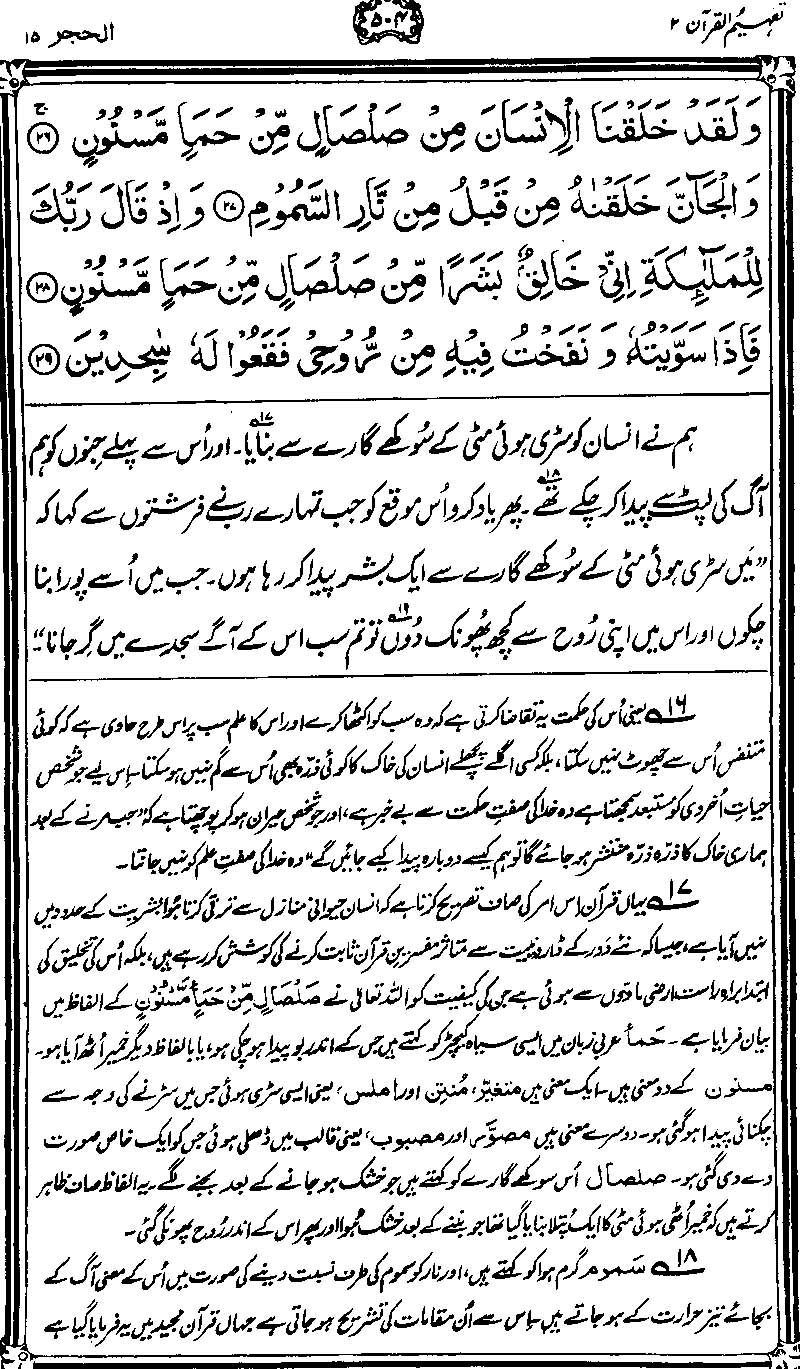 تفہیم القرآن ۲
۵۰۴
الحجر ۱۵
وَلَقَدْ خَلَقْنَا الْاِنْسَانَ مِنْ صَلْصَالٍ مِّنْ حَمَاٍ مَّسْنُوْنٍ ۚ ۝۲۶
وَالْجَآنَّ خَلَقْنٰهُ مِنْ قَبْلُ مِنْ نَّارِ السَّمُوْمِ ۝۲۷ وَاِذْ قَالَ رَبُّكَ
لِلْمَلٰٓئِكَةِ اِنِّیْ خَالِقٌۢ بَشَرًا مِّنْ صَلْصَالٍ مِّنْ حَمَاٍ مَّسْنُوْنٍ ۝۲۸
فَاِذَا سَوَّیْتُهٗ وَ نَفَخْتُ فِیْهِ مِنْ رُّوْحِیْ فَقَعُوْا لَهٗ سٰجِدِیْنَ ۝۲۹
ہم نے انسان کو سڑی ہوئی مٹی کے سُوکھے گارے سے بنایا۱۷۔ اور اُس سے پہلے جِنوں کو ہم
آگ کی لپٹ سے پیدا کر چکے تھے۱۸۔ پھر یاد کرو اُس موقع کو جب تمہارے رب نے فرشتوں سے کہا کہ
”میں سڑی ہوئی مٹی کے سُوکھے گارے سے ایک بشر پیدا کر رہا ہوں۔ جب میں اُسے پورا بنا
چکوں اور اس میں اپنی رُوح سے کچھ پھونک دُوں۱۹ تو تم سب اس کے آگے سجدے میں گر جانا“
۱۶؎ یعنی اُس کی حکمت یہ تقاضا کرتی ہے کہ وہ سب کو اکٹھا کرے اور اس کا علم سب پر اس طرح حاوی ہے کہ کوئی
متنفس اُس سے چھوٹ نہیں سکتا، بلکہ کسی اگلے پچھلے انسان کی خاک کا کوئی ذرّہ بھی اُس سے گم نہیں ہو سکتا۔ اِس لیے جو شخص
حیاتِ اُخروی کو مُستبعد سمجھتا ہے وہ خدا کی صفتِ حکمت سے بے خبر ہے، اور جو شخص حیران ہو کر پوچھتا ہے کہ ”جب مرنے کے بعد
ہماری خاک کا ذرّہ ذرّہ منتشر ہو جائے گا تو ہم کیسے دوبارہ پیدا کیے جائیں گے“ وہ خدا کی صفتِ علم کو نہیں جانتا۔
۱۷؎ یہاں قرآن اِس امر کی صاف تصریح کرتا ہے کہ انسان حیوانی منازل سے ترقی کرتا ہُوا بشریت کے حدود میں
نہیں آیا ہے، جیسا کہ نئے دَور کے ڈارونیت سے متاثر مفسرینِ قرآن ثابت کرنے کی کوشش کر رہے ہیں، بلکہ اُس کی تخلیق کی
ابتدا براہِ راست ارضی مادّوں سے ہوئی ہے جن کی کیفیت کو اللہ تعالیٰ نے صَلْصَالٍ مِّنْ حَمَاٍ مَّسْنُوْنٍ کے الفاظ میں
بیان فرمایا ہے۔ حمأ عربی زبان میں ایسی سیاہ کیچڑ کو کہتے ہیں جس کے اندر بو پیدا ہو چکی ہو، یا بالفاظِ دیگر خمیر اُٹھ آیا ہو۔
مسنون کے دو معنی ہیں۔ ایک معنی ہیں متغیّر، مُنتِن اور املس، یعنی ایسی سڑی ہوئی جس میں سڑنے کی وجہ سے
چکنائی پیدا ہو گئی ہو۔ دوسرے معنی ہیں مصوَّر اور مصبوب، یعنی قالب میں ڈھلی ہوئی جس کو ایک خاص صورت
دے دی گئی ہو۔ صلصال اُس سوکھے گارے کو کہتے ہیں جو خشک ہو جانے کے بعد بجنے لگے۔ یہ الفاظ صاف ظاہر
کرتے ہیں کہ خمیر اُٹھی ہوئی مٹی کا ایک پُتلا بنایا گیا تھا جو بننے کے بعد خشک ہُوا اور پھر اس کے اندر رُوح پھونکی گئی۔
۱۸؎ سَموم گرم ہوا کو کہتے ہیں، اور نار کو سموم کی طرف نسبت دینے کی صورت میں اُس کے معنی آگ کے
بجائے تیز حرارت کے ہو جاتے ہیں۔ اِس سے اُن مقامات کی تشریح ہو جاتی ہے جہاں قرآن مجید میں یہ فرمایا گیا ہے